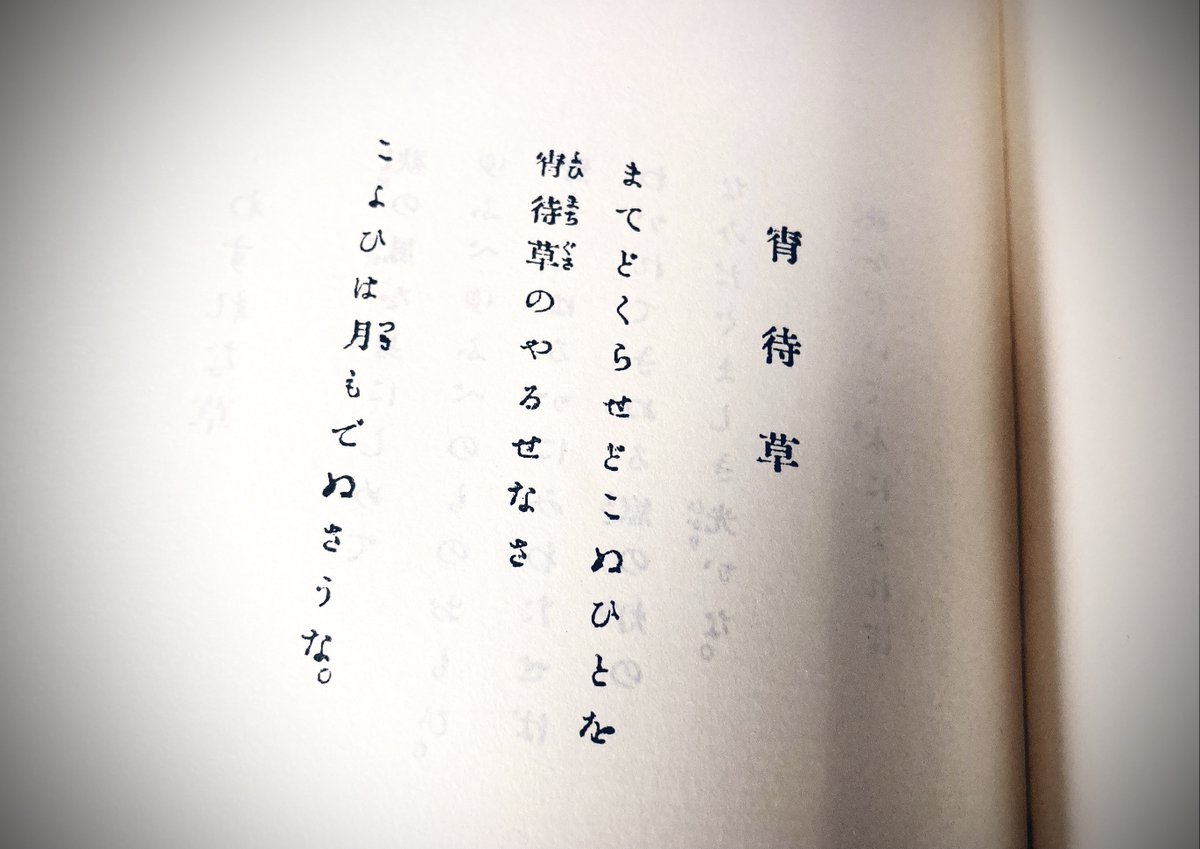 宵待草
まてどくらせどこぬひとを
宵待草のやるせなさ
こよひは月もでぬさうな。